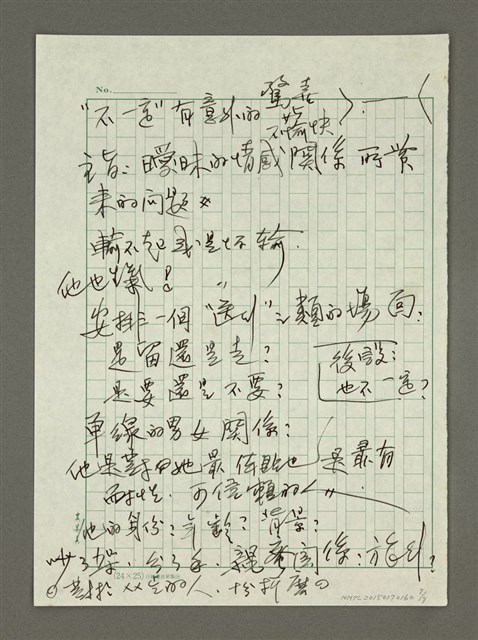 No.
"不一定"有意外的 驚喜
不愉快
主旨：曖昧的情感關係所帶
來的问題
輸不起或是怕輸
他也生氣！
安排一個"送別"之類的場面：
是留還是走？
是要還是不要？
後設：
也不一定？
單線的男女關係：
他是對她最體貼也是最有
耐性、可信賴的人
他的身份：年齡？背景？
吵了架、分了手、親密関係：旅行？
(24×25)
NMTL20150170160 7/9